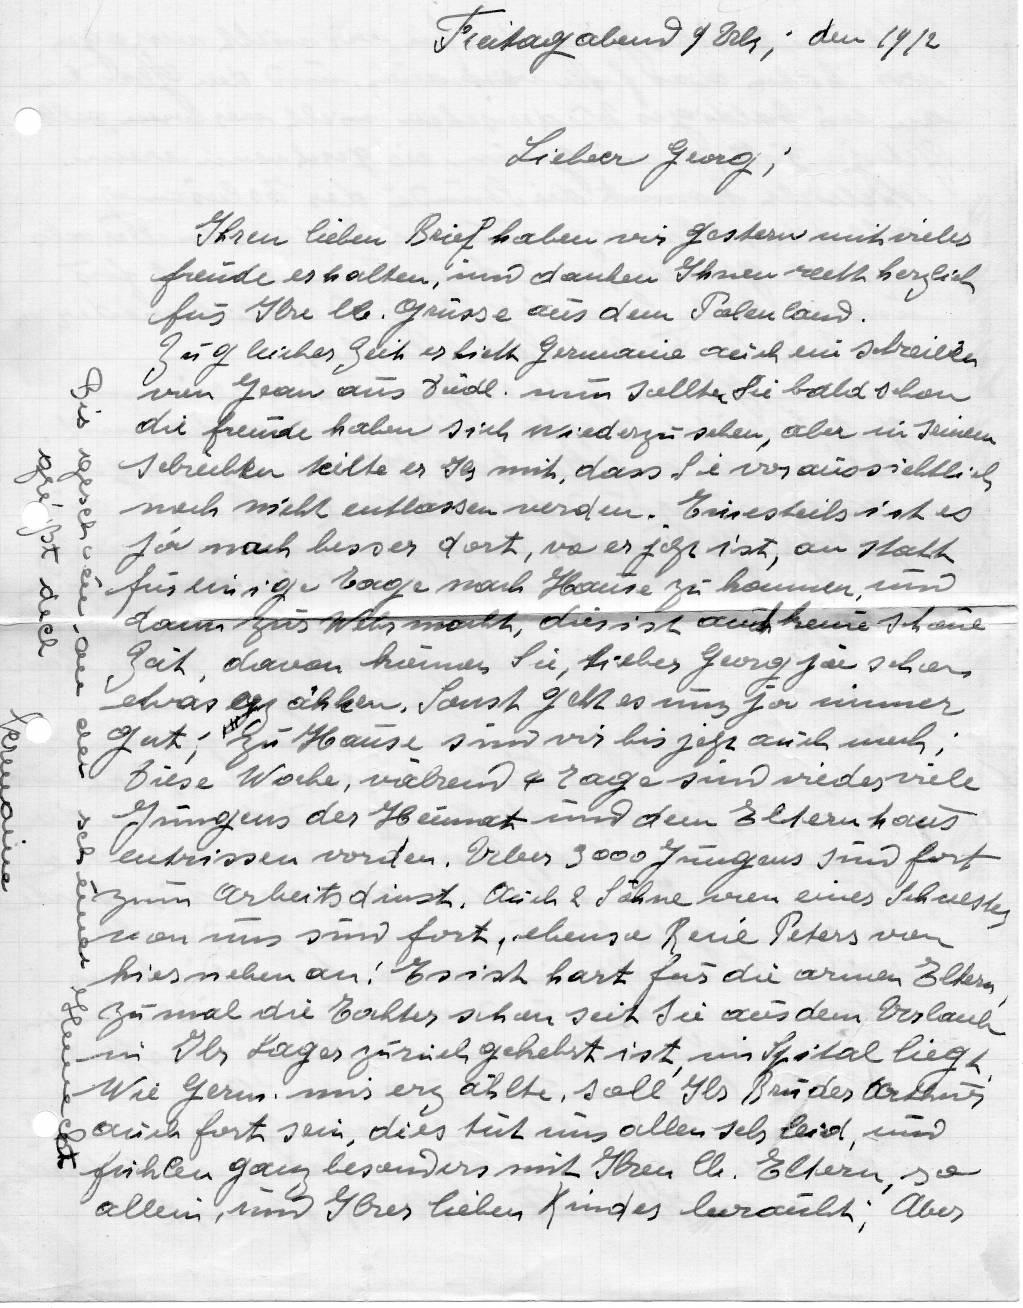 Freitagabend 9 Uhr; den 19/2
Lieber Georg;
Ihren lieben Brief haben wir gestern mit vieler
freude erhalten, und danken Ihnen recht herzlich
für Ihre lb. Grüsse aus dem Polenland.
Zu gleicher Zeit erhielt Germaine auch ein schreiben
von Jean aus Düdl. nun sollten Sie bald schon
die freude haben sich wiederzusehen, aber in seinem
schreiben teilte er Ihr mit, dass Sie voraussichtlich
noch nicht entlassen werden. Einesteils ist es
ja noch besser dort, wo er jetzt ist, an statt
für einige Tage nach Hause zu kommen, und
dann zur Wehrmacht, dies ist auch keine schöne
Zeit, davon können Sie, lieber Georg ja schon
etwas erzählen. Sonst geht es uns ja immer
gut; Zu Hause sind wir bis jetzt auch noch;
Diese Woche, während 4 Tage sind wieder viele
Jungens der Heimat und dem Elternhaus
entrissen worden. Ueber 3000 Jungens sind fort
zum Arbeitsdinst. Auch 2 Söhne von einer Schwester
von uns sind fort, ebenso René Peters von
hier neben an! Es ist hart für die armen Eltern,
zumal die Tochter schon seit Sie aus dem Urlaub
in Ihr Lager zurückgekehrt ist, im Spital liegt.
Wie Germ. mir erzählte, soll Ihr Bruder Arthur
auch fort sein, dies tut uns allen sehr leid, und
fühlen ganz besonders mit Ihren lb. Eltern, so
allein, und Ihrer lieben Kinder beraubt; Aber
Dis geschriw an der schéiner Hemecht
gréisst dech
Germaine